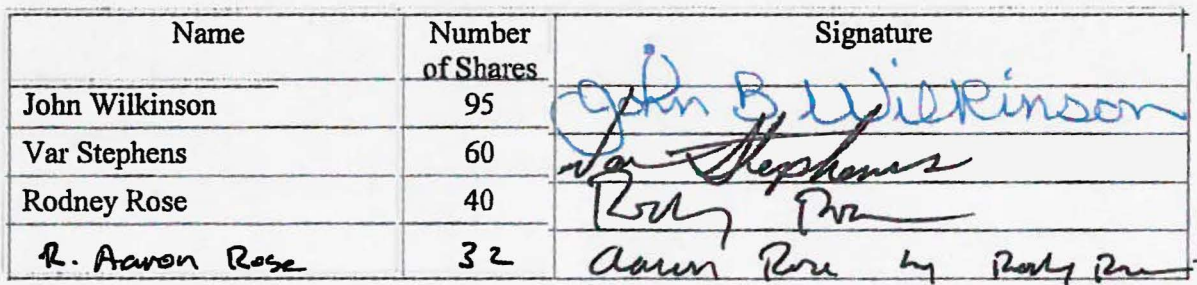 Name Number of Shares Signature
John Wilkinson 95 John B Wilkinson
Var Stephens 60 Var Stephens
Rodney Rose 40 Rodny Rose
R. Aaron Rose 32 Aaron Rose by Rodny Rose